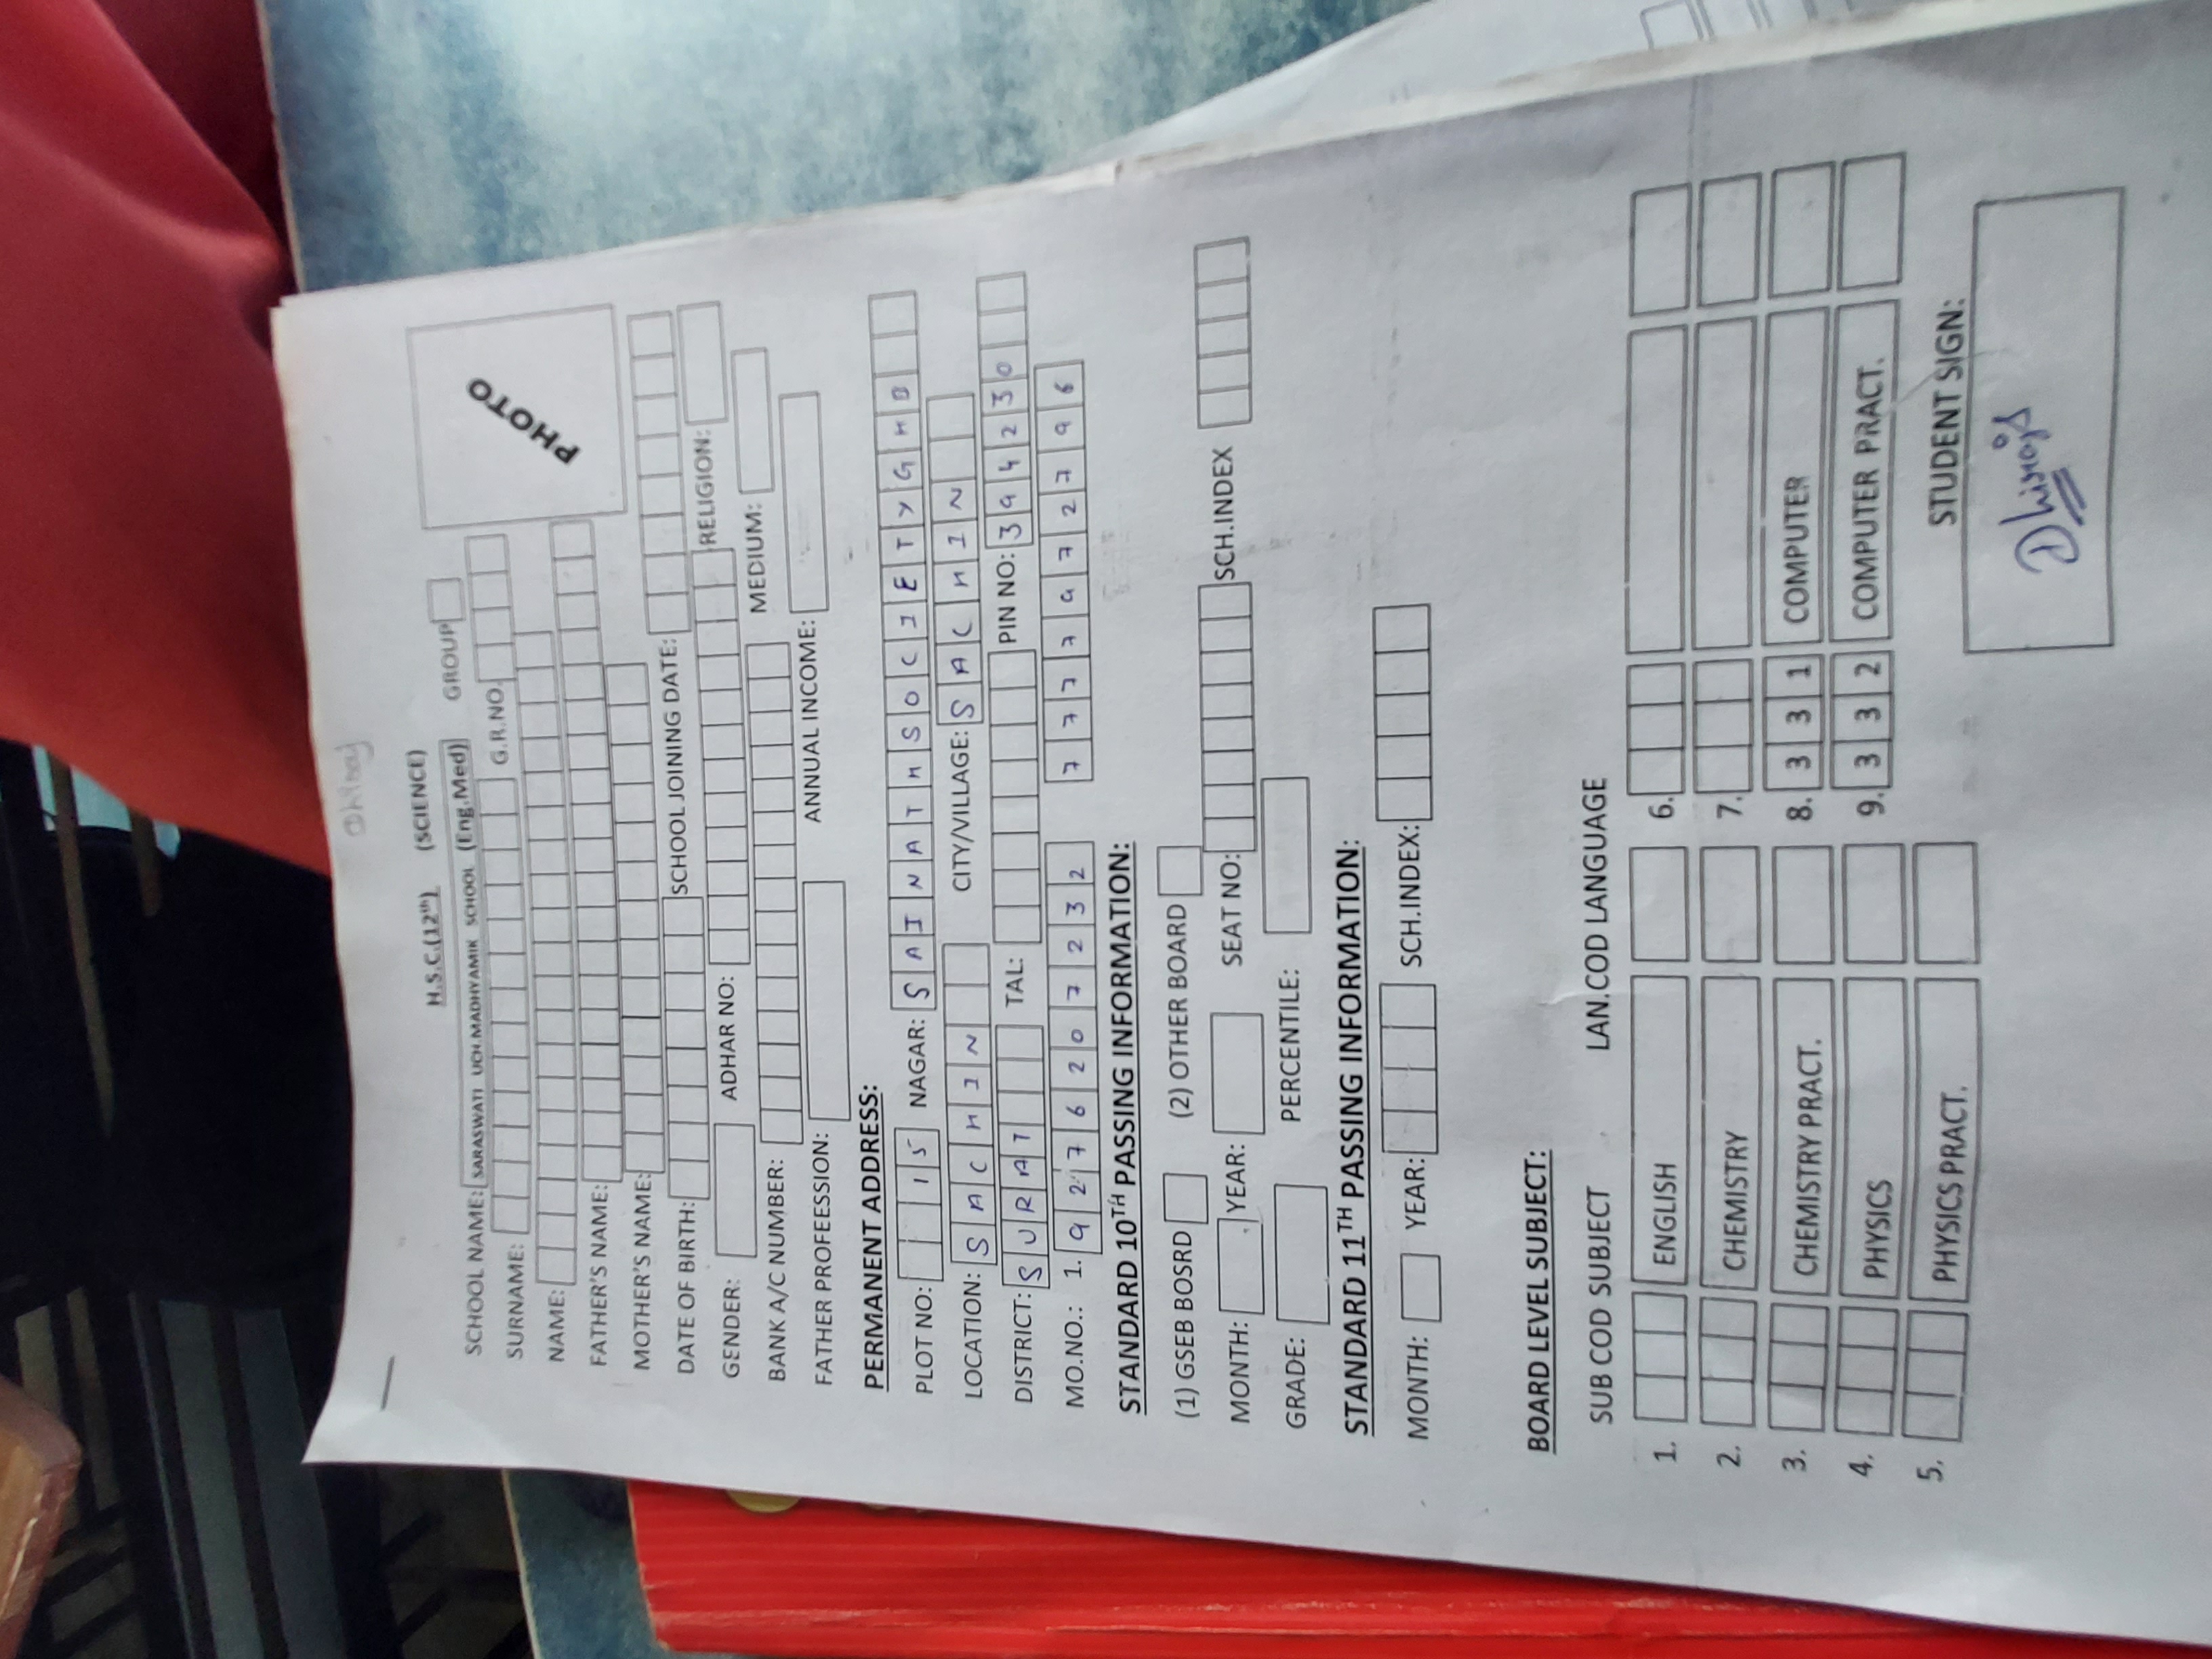 Dhiraj
H.S.C.(12th) (SCIENCE)
SCHOOL NAME: SARASWATI UCH.MADHYAMIK SCHOOL (Eng.Med) GROUP
SURNAME: G.R.NO.
PHOTO
NAME:
FATHER'S NAME:
MOTHER'S NAME:
DATE OF BIRTH: SCHOOL JOINING DATE:
GENDER: ADHAR NO: RELIGION:
BANK A/C NUMBER: MEDIUM:
FATHER PROFEESSION: ANNUAL INCOME:
PERMANENT ADDRESS:
PLOT NO: 15 NAGAR: SAINATH SOCIETY GHB
LOCATION: SACHIN CITY/VILLAGE: SACHIN
DISTRICT: SURAT TAL: PIN NO: 394230
MO.NO.: 1. 9276207232 7777972796
STANDARD 10TH PASSING INFORMATION:
(1) GSEB BOSRD (2) OTHER BOARD
MONTH: YEAR: SEAT NO: SCH.INDEX
GRADE: PERCENTILE:
STANDARD 11TH PASSING INFORMATION:
MONTH: YEAR: SCH.INDEX:
BOARD LEVEL SUBJECT:
SUB COD SUBJECT LAN.COD LANGUAGE
1. ENGLISH 6.
2. CHEMISTRY 7.
3. CHEMISTRY PRACT. 8. 331 COMPUTER
4. PHYSICS 9. 332 COMPUTER PRACT.
5. PHYSICS PRACT.
STUDENT SIGN:
Dhiraj